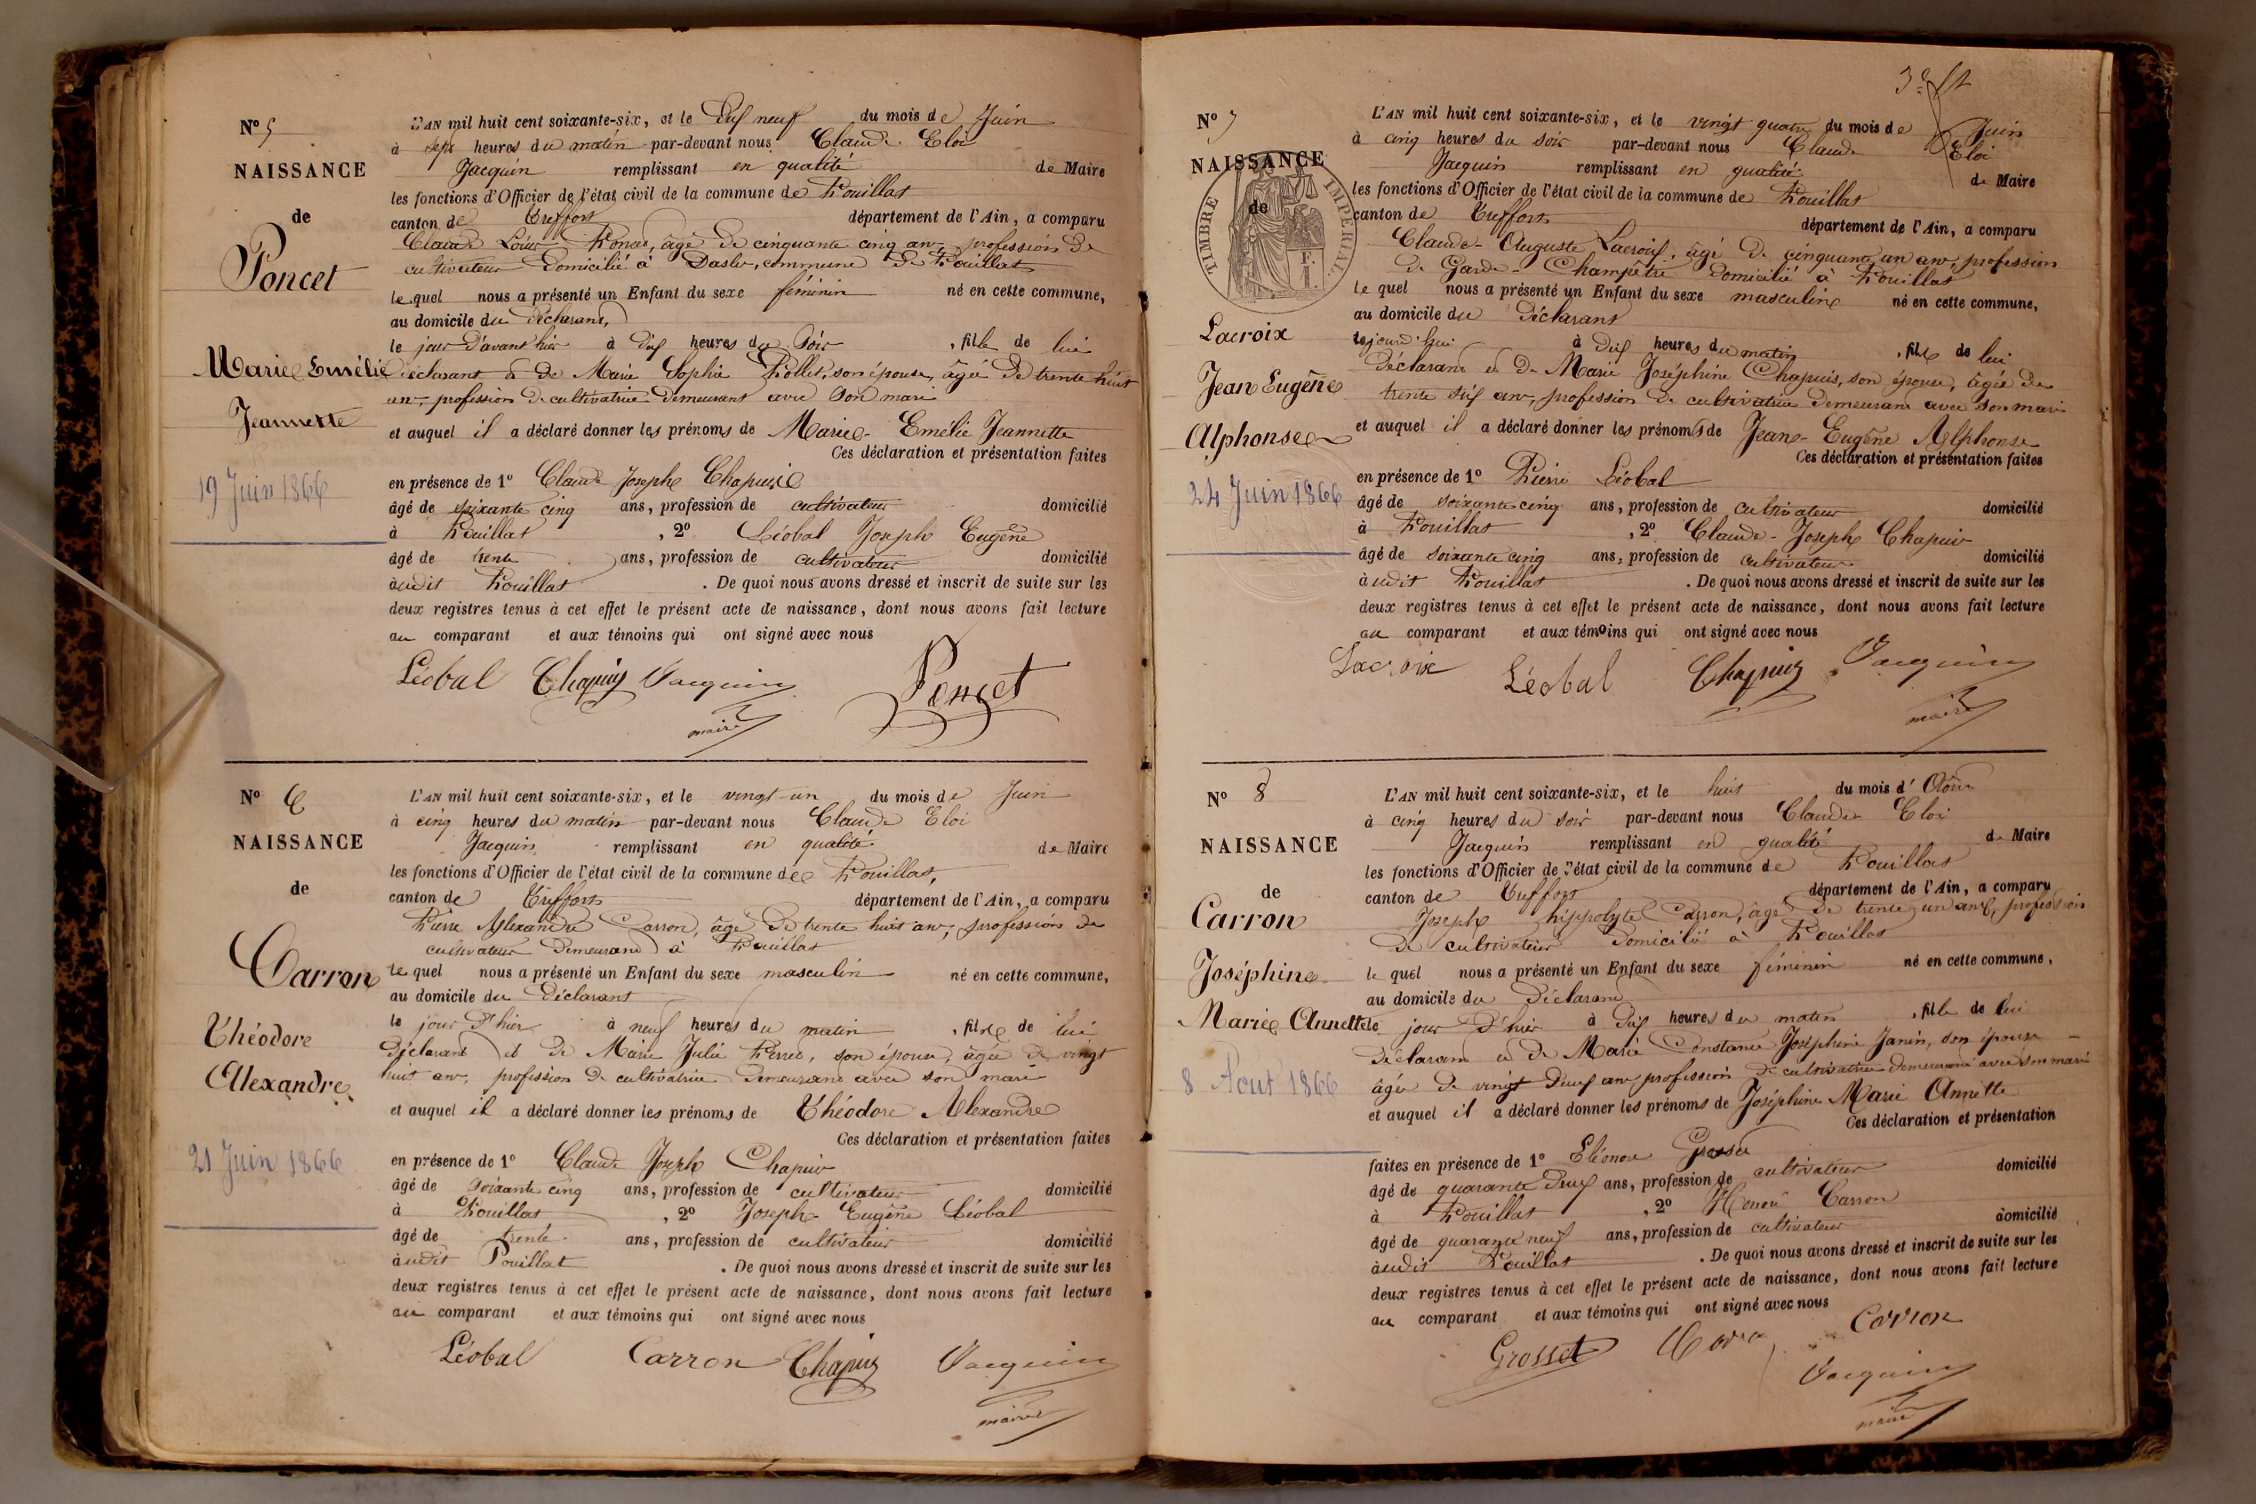 N° 5
NAISSANCE
de
Poncet
Marie Emélie
Jeannette
19 Juin 1866
L'AN mil huit cent soixante-six, et le dix neuf du mois de Juin
à sept heures du matin par-devant nous Claude Eloi
Jacquin remplissant en qualité de Maire
les fonctions d'Officier de l'état civil de la commune de Pouillat
canton de Treffort département de l'Ain, a comparu
Claude Louis Poncet, âgé de cinquante cinq ans, profession de
cultivateur domicilié à Dasle, commune de Pouillat
lequel nous a présenté un Enfant du sexe féminin né en cette commune,
au domicile du déclarant,
le jour d'avant hier à dix heures du soir , fille de lui
déclarant & de Marie Sophie Pollet, son épouse, âgée de trente huit
ans, profession de cultivatrice demeurant avec son mari
et auquel il a déclaré donner les prénoms de Marie-Emélie Jeannette
Ces déclaration et présentation faites
en présence de 1° Claude Joseph Chapuis
âgé de soixante cinq ans, profession de cultivateur domicilié
à Pouillat , 2° Léobal Joseph Eugène
âgé de trente ans, profession de cultivateur domicilié
audit Pouillat . De quoi nous avons dressé et inscrit de suite sur les
deux registres tenus à cet effet le présent acte de naissance, dont nous avons fait lecture
au comparant et aux témoins qui ont signé avec nous
Léobal Chapuis Jacquin Poncet
maire
N° 6
NAISSANCE
de
Carron
Théodore
Alexandre
21 Juin 1866
L'AN mil huit cent soixante-six, et le vingt-un du mois de Juin
à cinq heures du matin par-devant nous Claude Eloi
Jacquin remplissant en qualité de Maire
les fonctions d'Officier de l'état civil de la commune de Pouillat,
canton de Treffort département de l'Ain, a comparu
Pierre Alexandre Carron, âgé de trente huit ans, profession de
cultivateur demeurant à Pouillat
lequel nous a présenté un Enfant du sexe masculin né en cette commune,
au domicile du déclarant
le jour d'hier à neuf heures du matin , fils de lui
déclarant et de Marie Julie Perret, son épouse, âgée de vingt
huit ans, profession de cultivatrice demeurant avec son mari
et auquel il a déclaré donner les prénoms de Théodore Alexandre
Ces déclaration et présentation faites
en présence de 1° Claude Joseph Chapuis
âgé de soixante cinq ans, profession de cultivateur domicilié
à Pouillat , 2° Joseph Eugène Léobal
âgé de trente ans, profession de cultivateur domicilié
audit Pouillat . De quoi nous avons dressé et inscrit de suite sur les
deux registres tenus à cet effet le présent acte de naissance, dont nous avons fait lecture
au comparant et aux témoins qui ont signé avec nous
Léobal Carron Chapuis Jacquin
maire
N° 7
NAISSANCE
de
TIMBRE IMPÉRIAL
Lacroix
Jean Eugène
Alphonse
24 Juin 1866
L'AN mil huit cent soixante-six, et le vingt quatre du mois de Juin
à cinq heures du soir par-devant nous Claude Eloi
Jacquin remplissant en qualité de Maire
les fonctions d'Officier de l'état civil de la commune de Pouillat
canton de Treffort département de l'Ain, a comparu
Claude-Auguste Lacroix, âgé de cinquante un ans, profession
de Garde-Champêtre domicilié à Pouillat
lequel nous a présenté un Enfant du sexe masculin né en cette commune,
au domicile du déclarant
lejourd'hui à dix heures du matin , fils de lui
déclarant et de Marie Joséphine Chapuis, son épouse, âgée de
trente six ans, profession de cultivatrice demeurant avec son mari
et auquel il a déclaré donner les prénoms de Jean-Eugène Alphonse
Ces déclaration et présentation faites
en présence de 1° Pierre Léobal
âgé de soixante cinq ans, profession de cultivateur domicilié
à Pouillat , 2° Claude-Joseph Chapuis
âgé de soixante cinq ans, profession de cultivateur domicilié
audit Pouillat . De quoi nous avons dressé et inscrit de suite sur les
deux registres tenus à cet effet le présent acte de naissance, dont nous avons fait lecture
au comparant et aux témoins qui ont signé avec nous
Lacroix Léobal Chapuis Jacquin
maire
N° 8
NAISSANCE
de
Carron
Joséphine
Marie Annette
8 Aout 1866
L'AN mil huit cent soixante-six, et le huit du mois d'Août
à cinq heures du soir par-devant nous Claude Eloi
Jacquin remplissant en qualité de Maire
les fonctions d'Officier de l'état civil de la commune de Pouillat
canton de Treffort département de l'Ain, a comparu
Joseph hippolyte Carron, âgé de trente un ans, profession
de cultivateur domicilié à Pouillat
lequel nous a présenté un Enfant du sexe féminin né en cette commune,
au domicile du déclarant
le jour d'hier à dix heures du matin , fille de lui
déclarant et de Marie Constance Joséphine Janin, son épouse
âgée de vingt deux ans profession de cultivatrice demeurant avec son mari
et auquel il a déclaré donner les prénoms de Joséphine Marie Annette
Ces déclaration et présentation
faites en présence de 1° Eléonore Grosset
âgé de quarante deux ans, profession de cultivateur domicilié
à Pouillat , 2° Honoré Carron
âgé de quarante neuf ans, profession de cultivateur domicilié
audit Pouillat . De quoi nous avons dressé et inscrit de suite sur les
deux registres tenus à cet effet le présent acte de naissance, dont nous avons fait lecture
au comparant et aux témoins qui ont signé avec nous
Grosset Carron
Jacquin
maire